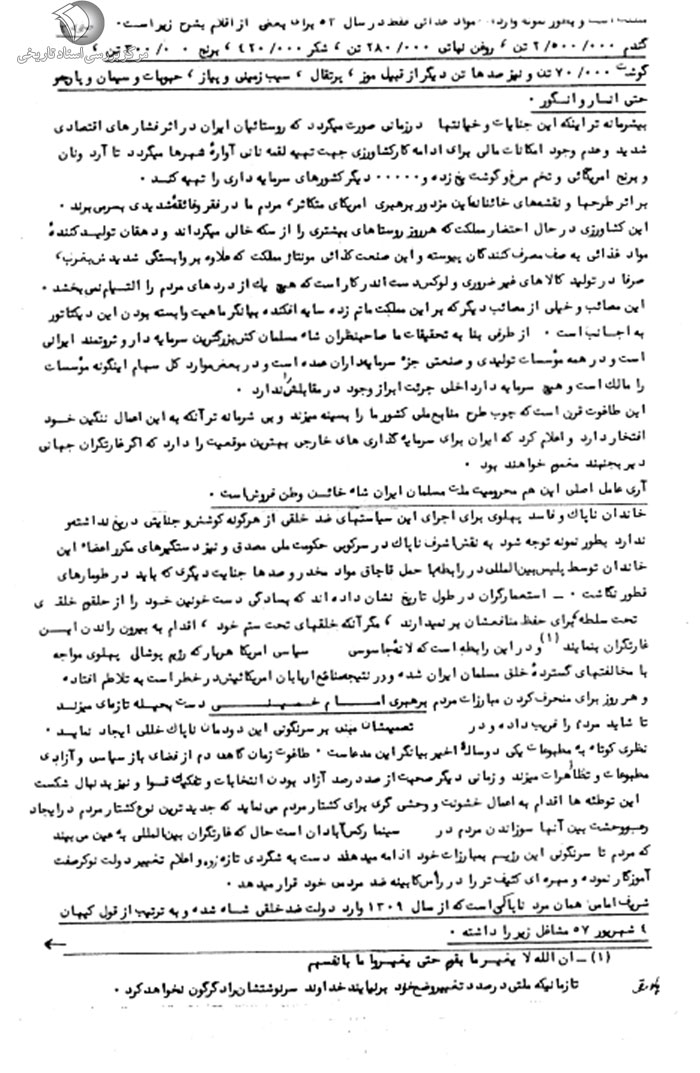 مرکز بررسی اسناد تاریخی
است و بطور نمونه واردات مواد غذائی فقط در سال ۵۲ برای بعضی از اقلام بشرح زیر است.
گندم ۲/۵۰۰/۰۰۰ تن ، روغن نباتی ۲۸۰/۰۰۰ تن ، شکر ۴۲۰/۰۰۰ ، برنج ۳۰۰/۰۰۰ تن ،
گوشت ۷۰/۰۰۰ تن و نیز صدها تن دیگر از قبیل موز ، پرتقال ، سیب زمینی و پیاز ، حبوبات و سیمان و پارچه و
حتی انار و انگور .
بیشرمانه تر اینکه این جنایات و خیانتها در زمانی صورت میگردد که روستائیان ایران در اثر فشارهای اقتصادی
شدید و عدم وجود امکانات مالی برای ادامه کار کشاورزی جهت تهیه لقمه نانی آوارهٔ شهرها میگردد تا آرد و نان
و برنج امریکائی و تخم مرغ و گوشت یخ زده و ۰۰۰۰۰ دیگر کشورهای سرمایه داری را تهیه کند .
بر اثر طرحها و نقشه‌های خائنانه این مزدور برهبری امریکای متکاثر ، مردم ما در فقر و فاقهٔ شدیدی بسر می برند .
این کشاورزی در حال احتضار مملکت که هر روز روستاهای بیشتری را از سکنه خالی میگرداند و دهقان تولید کنندهٔ
مواد غذائی به صف مصرف کنندگان پیوسته و این صنعت کذائی مونتاژ مملکت که علاوه بر وابستگی شدیدش بغرب ،
صرفا در تولید کالاهای غیر ضروری و لوکس دست اندر کار است که هیچ یک از دردهای مردم را التیام نمی بخشد .
این مصائب و خیلی از مصائب دیگر که بر این مملکت ماتم زده سایه افکنده بیانگر ماهیت وابسته بودن این دیکتاتور
به اجانب است . از طرفی بنا به تحقیقات ما صاحبنظران شاه مسلمان کش بزرگترین سرمایه دار و ثروتمند ایرانی
است و در همه مؤسسات تولیدی و صنعتی جزء سرمایه داران عمده است و در بعض موارد کل سهام اینگونه مؤسسات
را مالک است و هیچ سرمایه دار داخلی جرئت ابراز وجود در مقابلش را ندارد .
این طاغوت قرن است که چوب طرح منابع ملی کشور ما را بسینه میزند و بی شرمانه تر آنکه به این اعمال ننگین خود
افتخار دارد و اعلام کرد که ایران برای سرمایه گذاری های خارجی بهترین موقعیت را دارد که اگر غارتگران جهانی
دیر بجنبند مغموم خواهند بود .
آری عامل اصلی این هم محرومیت ملت مسلمان ایران شاه خائن وطن فروش است .
خاندان ناپاک و فاسد پهلوی برای اجرای این سیاستهای ضد خلقی از هرگونه کوشش و جنایتی دریغ نداشته و
ندارد بطور نمونه توجه شود به نقش اشرف ناپاک در سرکوبی حکومت ملی مصدق و نیز دستگیرهای مکرر اعضاء این
خاندان توسط پلیس بین المللی در رابطه با حمل قاچاق مواد مخدر و صدها جنایت دیگری که باید در طومارهای
قطور نگاشت . ــ استعمارگران در طول تاریخ نشان داده اند که بسادگی دست خونین خود را از حلقوم خلقهای
تحت سلطه که برای حفظ منافعشان بر نمیدارند ، مگر آنکه خلقهای تحت ستم خود ، اقدام به بیرون راندن این
غارتگران بنمایند (۱) و در این رابطه است که لانهٔ جاسوسی سیاسی امریکا هر بار که رژیم پوشالی پهلوی مواجه
با مخالفتهای گستردهٔ خلق مسلمان ایران شده و در نتیجه منافع اربابان امریکائیش در خطر است به تلاطم افتاده
و هر روز برای منحرف کردن مبارزات مردم برهبری امـام خمینـی دست بحیله تازهای میزند
تا شاید مردم را فریب داده و در تصمیمشان مبنی بر سرنگونی این دودمان ناپاک خللی ایجاد نماید .
نظری کوتاه به مطبوعات یکی دو سالهٔ اخیر بیانگر این مدعاست . طاغوت زمان گاهی دم از فضای باز سیاسی و آزادی
مطبوعات و تظاهرات میزند و زمانی دیگر صحبت از صد در صد آزاد بودن انتخابات و تفکیک قوا و نیز بدنبال شکست
این توطئه ها اقدام به اعمال خشونت و وحشی گری برای کشتار مردم می نماید که جدیدترین نوع کشتار مردم در ایجاد
رعب و وحشت بین آنها سوزاندن مردم در سینما رکس آبادان است حال که غارتگران بین المللی به عین می بینند
که مردم تا سرنگونی این رژیم بمبارزات خود ادامه میدهند دست به شگردی تازه زده و اعلام تغییر دولت نوکر صفت
آموزگار نموده و مهره ای کثیف تر را در رأس کابینه ضد مردمی خود قرار میدهد .
شریف امامی همان مرد ناپاکی است که از سال ۱۳۰۹ وارد دولت ضد خلقی شاه شده و به ترتیب از قول کیهان
۴ شهریور ۵۷ مشاغل زیر را داشته .
(۱) ــ ان الله لا یغیر ما بقوم حتی یغیروا ما بانفسهم
تا زمانیکه ملتی در صدد تغییر وضع خود بر نیایند خداوند سرنوشتشان را دگرگون نخواهد کرد .
پاورقی